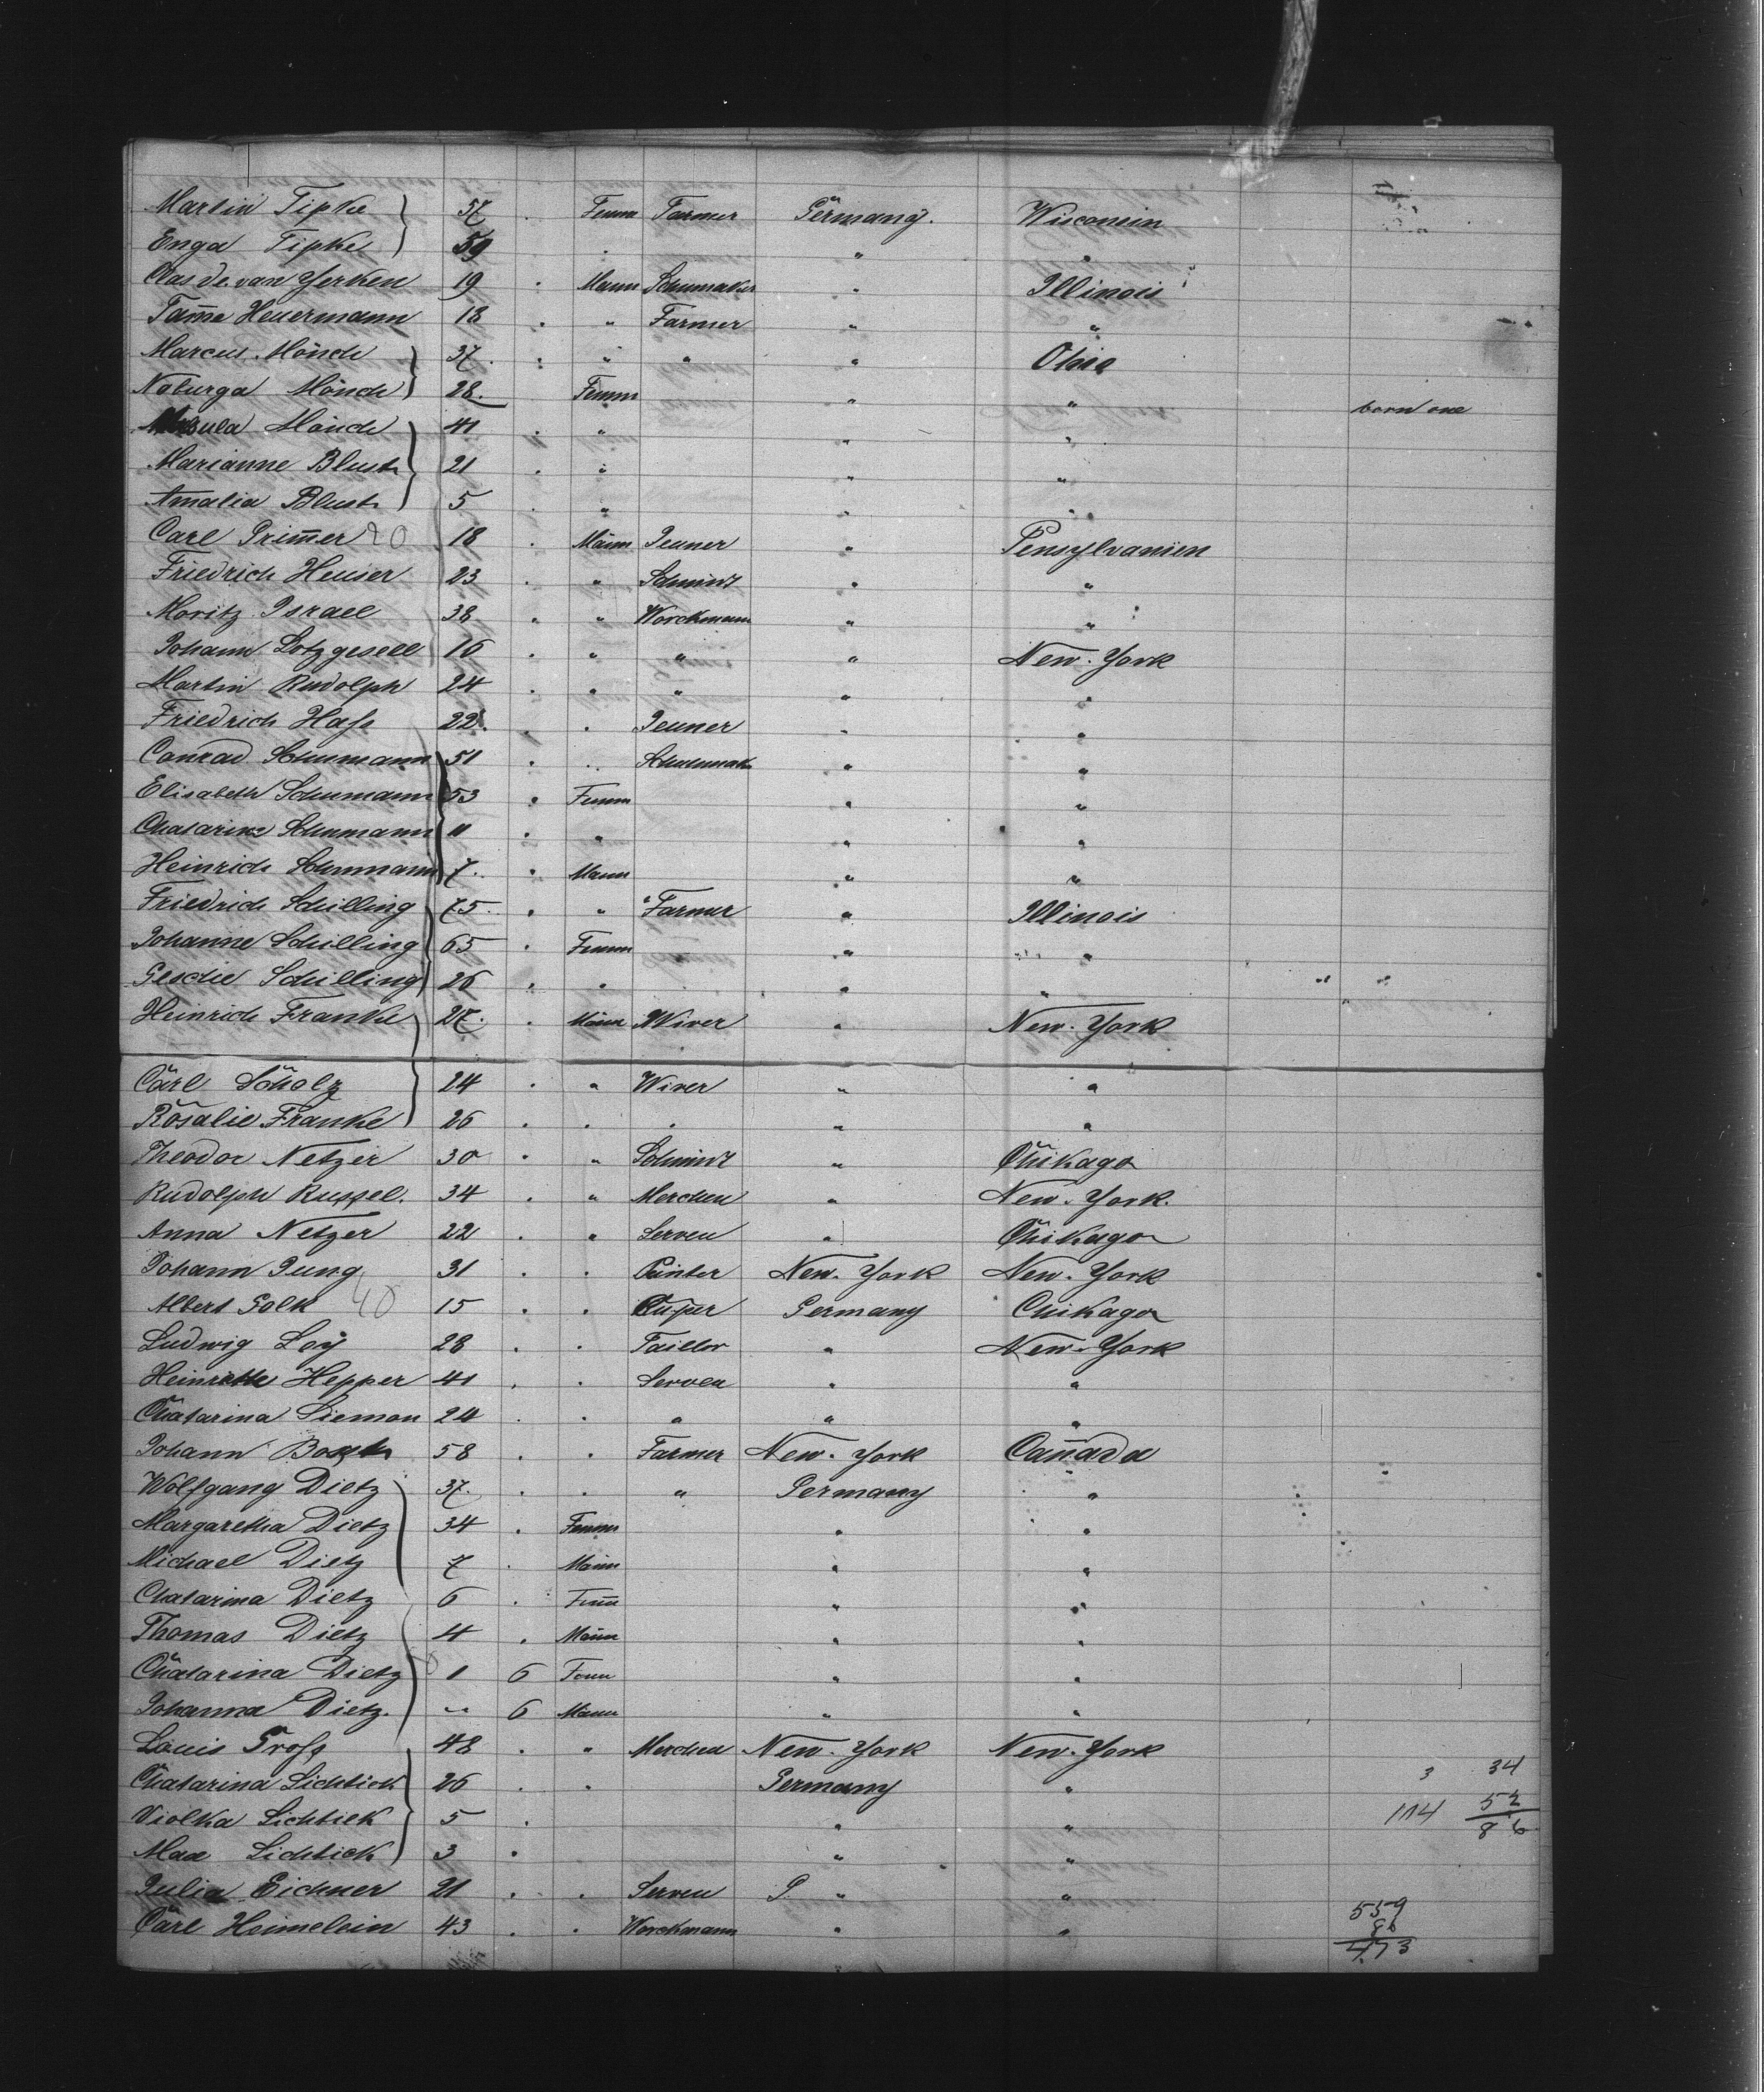 Martin Tipke } 57 . Femm Farmer Germany. Wisconsin
Enga Tipke } 59 . " "
Clas de van Yerken 19 . Mann Schumaker " Illinois
Tam̄e Heuermann 18 . " Farmer " "
Marcus Mönch } 37 . " " " Ohio
Noturga Mönch } 28. Femm " " born one
Ursula Mönch } 41 . " " "
Marianne Blust } 21 . " " "
Amalia Blust } 5 . " " "
Carl Grim̄er 20 18 . Mann Jeuner " Pensylvanien
Friedrich Heuser 23 . " Schmidt " "
Moritz Israel 38 . " Worckmann " "
Johann Lotzgesell 16 . " " " New-York
Martin Rudolph 24 . " " " "
Friedrich Hass 22. . " Jeuner " "
Conrad Schumann } 51 . " Schuhmak " "
Elisabeth Schumann } 53 . Femm " "
Chatarina Schumann } 11 . " " "
Heinrich Schumann } 7. . Mann " "
Friedrich Schilling } 75. . " Farmer " Illinois
Johanne Schilling } 65 . Femm " "
Geschie Schilling } 26 . " " "
Heinrich Franke } 27. . Mann Wiver " New-York
Carl Scholz } 24 . " Wiver " "
Rosalie Franke } 26 . . . " "
Theodor Netzer 30 . " Schmidt " Chikago
Rudolph Russel. 34 . " Merchen " New-York.
Anna Netzer 22 . " Serven " Chikago
Johann Jung 31 . . Painter New-York New-York
Albert Golk 40 15 . . Cuper Germany Chikago
Ludwig Loy 28 . . Taillor " New-York
Heinrette Hepper 41 . . Serven " "
Chatarina Siemon 24 . . " " "
Johann 58 . . Farmer New-York Canada
Wolfgang Dietz } 37. . . " Germany "
Margaretha Dietz } 34 . Femm " "
Michael Dietz } 7 . Mann " "
Chatarina Dietz } 6 . Fem̄ " "
Thomas Dietz } 4 . Mann " "
Chatarina Dietz } 1 6 Femm " "
Johanna Dietz. } " 6 Mann " "
Louis Gross 48 . " Merchen New-York New-York
Chatarina Lichtick } 26 . " Germany " 3 34
Violka Lichtick } 5 . " " 114 52
86
Max Lichtick } 3 . " "
Julia Eichner 21 . . Serven G. " "
Carl Heimelein 43 . . Worckmann " "
559
86
473